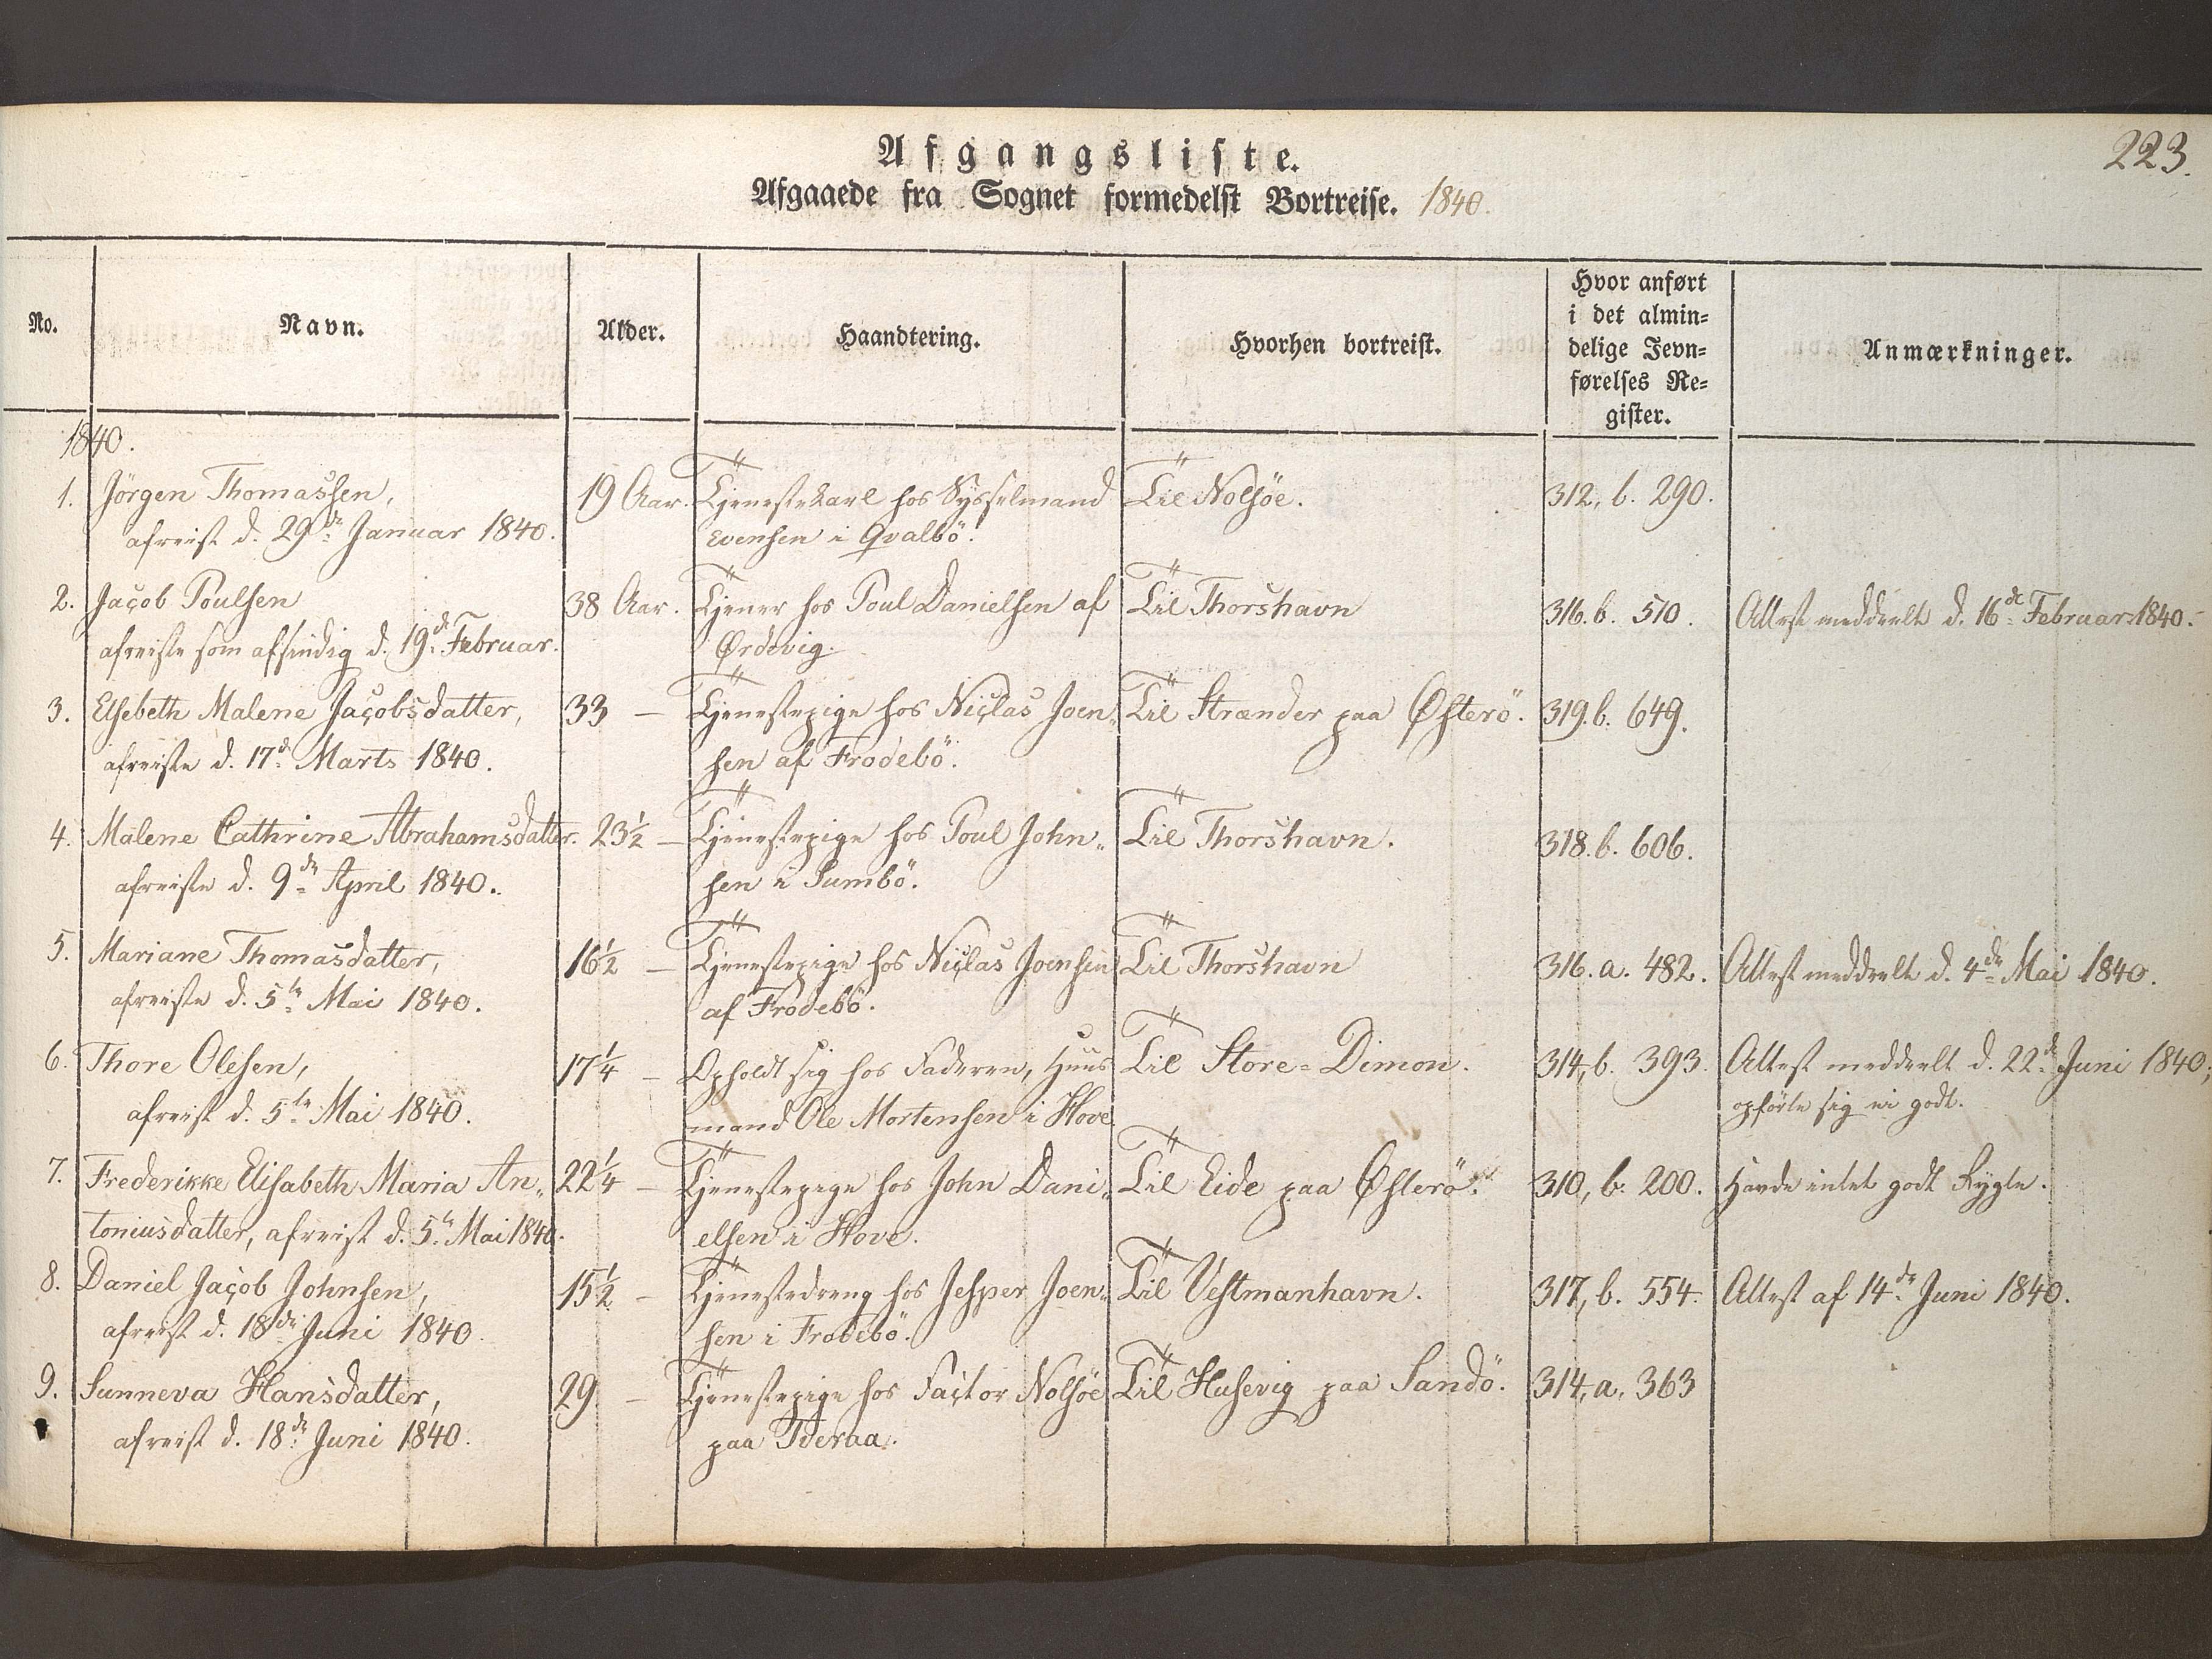 223.
Afgangsliste.
Afgaaede fra Sognet formedelst Bortreise. 1840.
No.
Navn.
Alder.
Haandtering.
Hvorhen bortreist.
Hvor anført
i det almin=
delige Jevn=
førelses Re=
gister.
Anmærkninger.
1840.
1. Jörgen Thomassen, 19 Aar. Tjenestekarl hos Sysselmand Til Nolsöe. 312, b. 290.
afreist d. 29de Januar 1840. Evensen i Qvalbö.
2. Jacob Poulsen 38 Aar. Tjener hos Poul Danielsen af Til Thorshavn 316. b. 510. Attest meddeelt d. 16de Februar 1840.
afreiste som afsindig d. 19de Februar. Ørdevig.
3. Elsebeth Malene Jacobsdatter, 33 — Tjenestepige hos Niclas Joen„ Til Strænder paa Østerö. 319. b. 649.
afreiste d. 17de Marts 1840. sen af Frodebö.
4. Malene Cathrine Abrahamsdatter. 23½ — Tjenestepige hos Poul John„ Til Thorshavn. 318. b. 606.
afreiste d. 9de April 1840. sen i Sumbö.
5. Mariane Thomasdatter, 16½ — Tjenestepige hos Niclas Joensen Til Thorshavn 316. a. 482. Attest meddeelt d. 4de Mai 1840.
afreiste d. 5te Mai 1840. af Frodebö.
6. Thore Olesen, 17¼ — Opholdt sig hos Faderen, Huus Til Store=Dimon. 314, b. 393. Attest meddeelt d. 22de Juni 1840;
afreist d. 5te Mai 1840. mand Ole Mortensen i Hove. opförte sig ei godt.
7. Frederikke Elisabeth Maria An„ 22¼ — Tjenestepige hos John Dani„ Til Eide paa Østerö. 310, b. 200. Havde intet godt Rygte.
toniusdatter, afreist d. 5te Mai 1840. elsen i Hove.
8. Daniel Jacob Johnsen, 15½ — Tjenestedreng hos Jesper Joen„ Til Vestmanhavn. 317, b. 554. Attest af 14de Juni 1840.
afreist d. 18de Juni 1840. sen i Frodebö.
9. Sunneva Hansdatter, 29 — Tjenestepige hos Factor Nolsöe Til Husevig paa Sandö. 314, a, 363
afreist d. 18de Juni 1840. paa Tveraa.